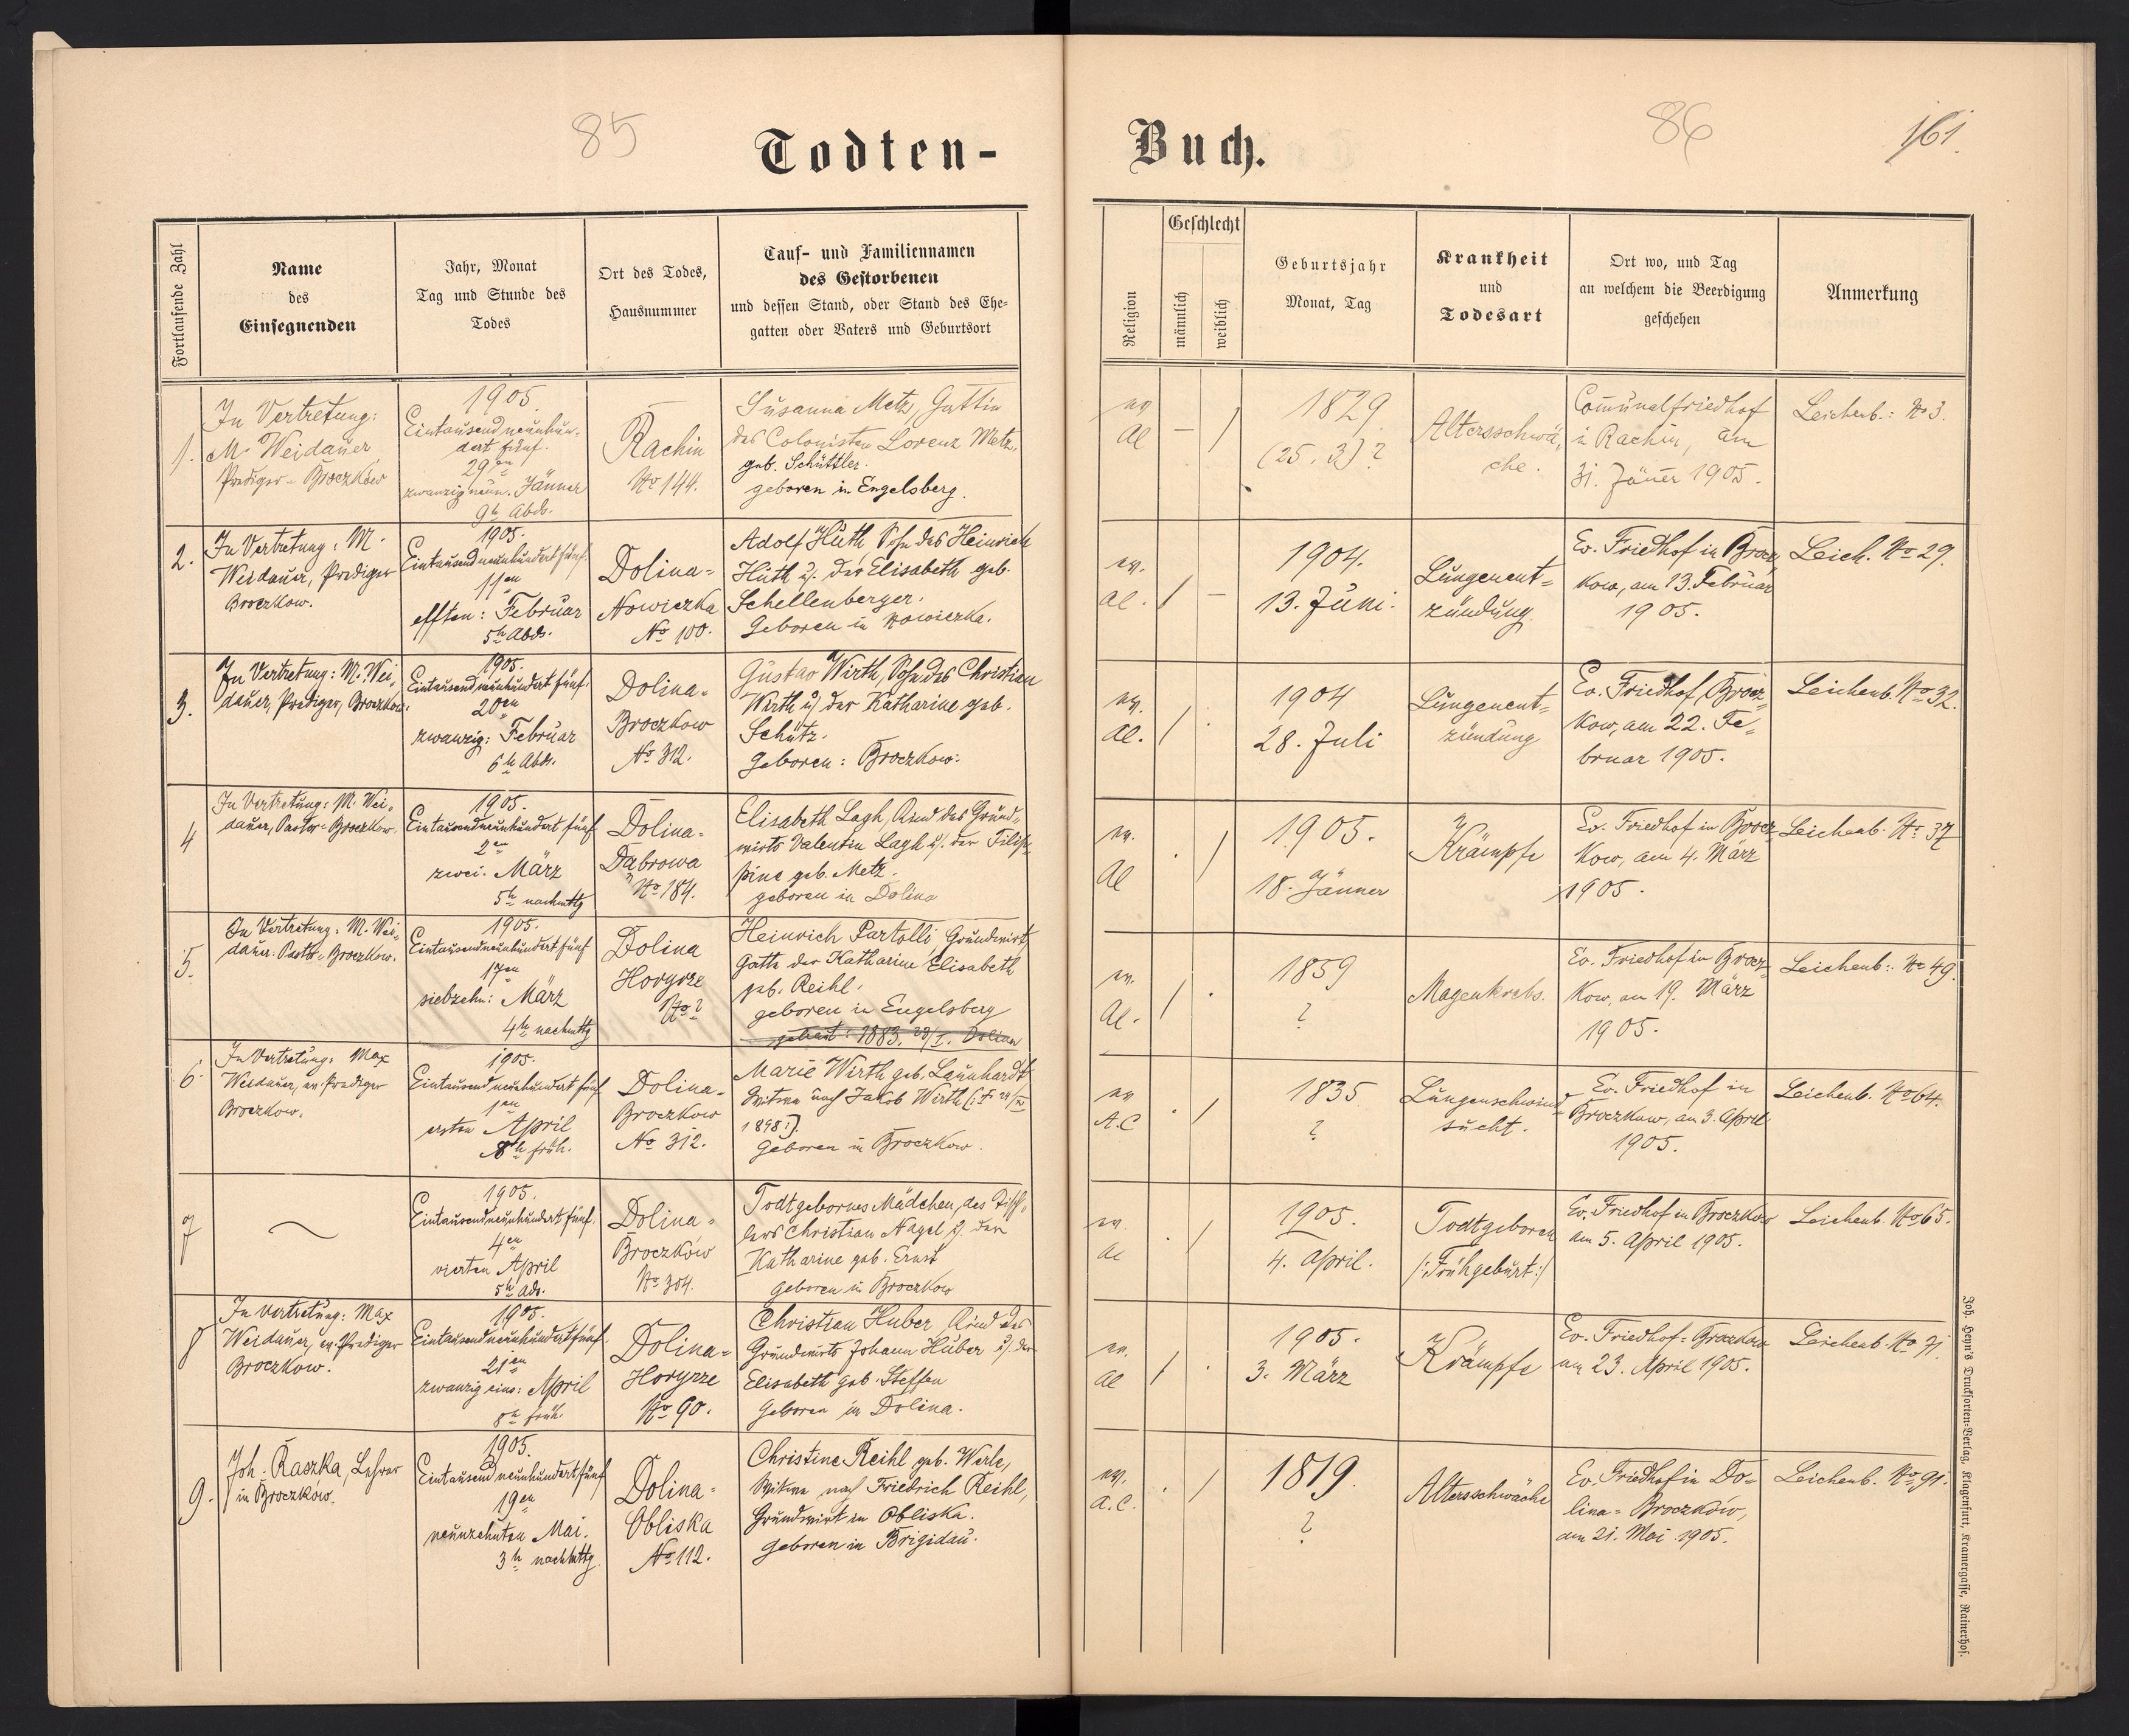 85
Todten-
Fortlaufende Zahl
Name
des
Einsegnenden
Jahr, Monat
Tag und Stunde des
Todes
Ort des Todes,
Hausnummer
Tauf- und Familiennamen
des Gestorbenen
und dessen Stand, oder Stand des Ehe-
gatten oder Vaters und Geburtsort
1.
In Vertretung:
M. Weidauer
Prediger - Broczków
1905.
Eintausendneunhun-
dert fünf.
29en
zwanzigneun. Jänner
9h Abds.
Rachin
No 144.
Susanna Metz, Gattin
des Colonisten Lorenz Metz,
geb. Schüttler.
geboren in Engelsberg.
2.
In Vertretung: M.
Weidauer, Prediger
Broczkow.
1905.
Eintausendneunhundertfünf.
11en
elften: Februar
5h Abds.
Dolina-
Nowiczka
No 100.
Adolf Huth Sohn des Heinrich
Huth u. der Elisabeth geb.
Schellenberger.
Geboren in Nowiczka.
3.
In Vertretung: M. Wei-
dauer, Prediger, Broczkow.
1905.
Eintausendneunhundert fünf.
20en
zwanzig: Februar
6h Abds.
Dolina-
Broczkow
No 312.
Gustav Wirth, Sohn des Christian
Wirth u. der Katharine geb.
Schütz.
Geboren: Broczkow.
4
In Vertretung: M. Wei-
dauer, Pastor - Broczkow.
1905.
Eintausendneunhundert fünf
2en
zwei. März
5h nachmttg
Dolina-
Dąbrowa
No 184.
Elisabeth Lagh, Kind des Grund-
wirts Valentin Lagh u. der Filip-
pine geb. Metz.
geboren in Dolina
5.
In Vertretung: M. Wei-
dauer: Pastor - Broczkow.
1905.
Eintausendneunhundertfünf
17en
siebzehn: März
4h nachmttg
Dolina
Horyrze
No ?
Heinrich Partolli Grundwirt,
Gatte der Katharine Elisabeth
geb. Reihl.
geboren in Engelsberg
getraut: 1883. 23/I. Dolina
6.
In Vertretung: Max
Weidauer, ev. Prediger
Broczkow.
1905.
Eintausendneunhundert fünf
1en
ersten April
8h früh.
Dolina-
Broczkow
No 312.
Marie Wirth geb. Launhardt
Witwe nach Jakob Wirth
1898
Geboren in Broczkow.
7
1905.
Eintausendneunhundert fünf.
4en
vierten April
5h Ads.
Dolina-
Broczków
No 304.
Todtgebornes Mädchen, des Tisch-
lers Christian Nagel u. der
Katharine geb. Ernst
geboren in Broczkow
8
In Vertretung: Max
Weidauer, ev. Prediger
Broczkow.
1905.
Eintausendneunhundertfünf.
21en
zwanzig eins: April
8h früh.
Dolina-
Horyrze
No 90.
Christian Huber, Kind des
Grundwirts Johann Huber u. der
Elisabeth geb. Steffen
Geboren in Dolina.
9.
Joh. Raszka, Lehrer
in Broczków.
1905.
Eintausend neunhundertfünf
19en
neunzehnten Mai.
3h nachmttg
Dolina-
Obliska
No 112.
Christine Reihl geb. Werle,
Witwe nach Friedrich Reihl,
Grundwirt in Obliska.
geboren in Brigidau.
86
161.
Buch.
Religion
Geschlecht
männlich
weiblich
Geburtsjahr
Monat, Tag
Krankheit
und
Todesart
Ort wo, und Tag
an welchem die Beerdigung
geschehen
Anmerkung
ev
al
–
/
1829.
(25. 3.)?
Altersschwä-
che.
Communalfriedhof
in Rachin, am
31. Jäner 1905.
Leichenb.: No 3.
ev.
al.
/
–
1904.
13. Juni.
Lungenent-
zündung
Ev. Friedhof in Brocz-
kow, am 13. Februar
1905.
Leich. No 29.
ev.
al.
/
.
1904
28. Juli
Lungenent-
zündung
Ev. Friedhof, Brocz-
kow, am 22. Fe-
bruar 1905.
Leichenb. No 32.
ev.
al
.
/
1905.
18. Jänner
Krämpfe
Ev. Friedhof in Brocz-
kow, am 4. März
1905.
Leichenb. No 37
ev.
al.
/
.
1859
?
Magenkrebs.
Ev. Friedhof in Brocz-
kow, am 19. März
1905.
Leichenb.: No 49.
ev
A.C
.
/
1835
?
Lungenschwind-
sucht.
Ev. Friedhof in
Broczkow, am 3. April
1905.
Leichenb. No 64.
ev.
al
.
/
1905.
4. April.
Todtgeboren
/:Frühgeburt:/
Ev. Friedhof in Broczkow
am 5. April 1905.
Leichenb. No 65.
ev.
al
/
.
1905.
3. März
Krämpfe
Ev. Friedhof: Broczkow
am 23. April 1905.
Leichenb. No 71.
ev.
a.C.
.
/
1819.
?
Altersschwäche
Ev. Friedhof in Do-
lina - Broczków,
am 21. Mai 1905.
Leichenb. No 91.
Joh. Heyn's Drucksorten-Verlag, Klagenfurt, Kramergasse, Rainerhof.